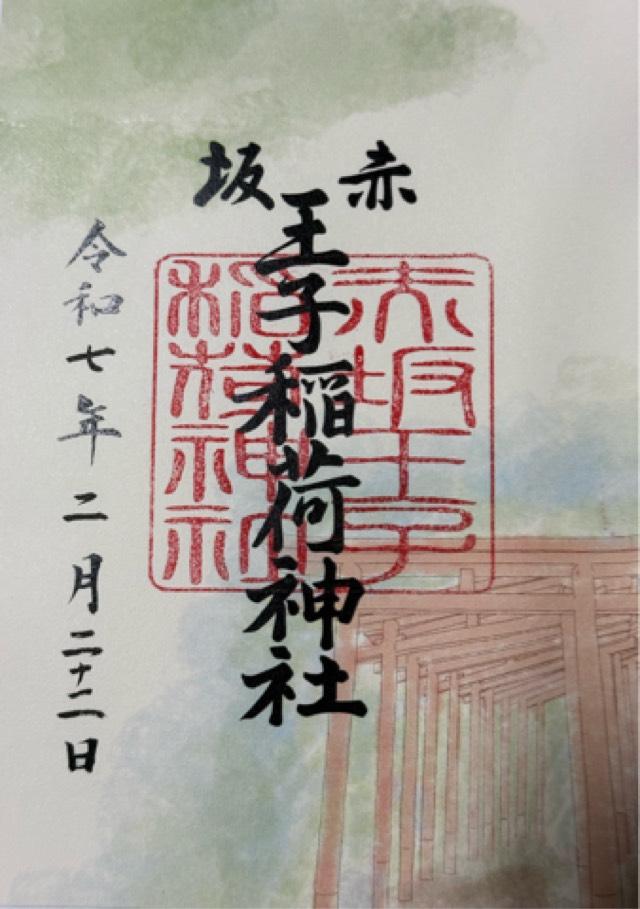 赤坂
王子稲荷神社
赤坂王子
稲荷神社
令和七年二月二十二日